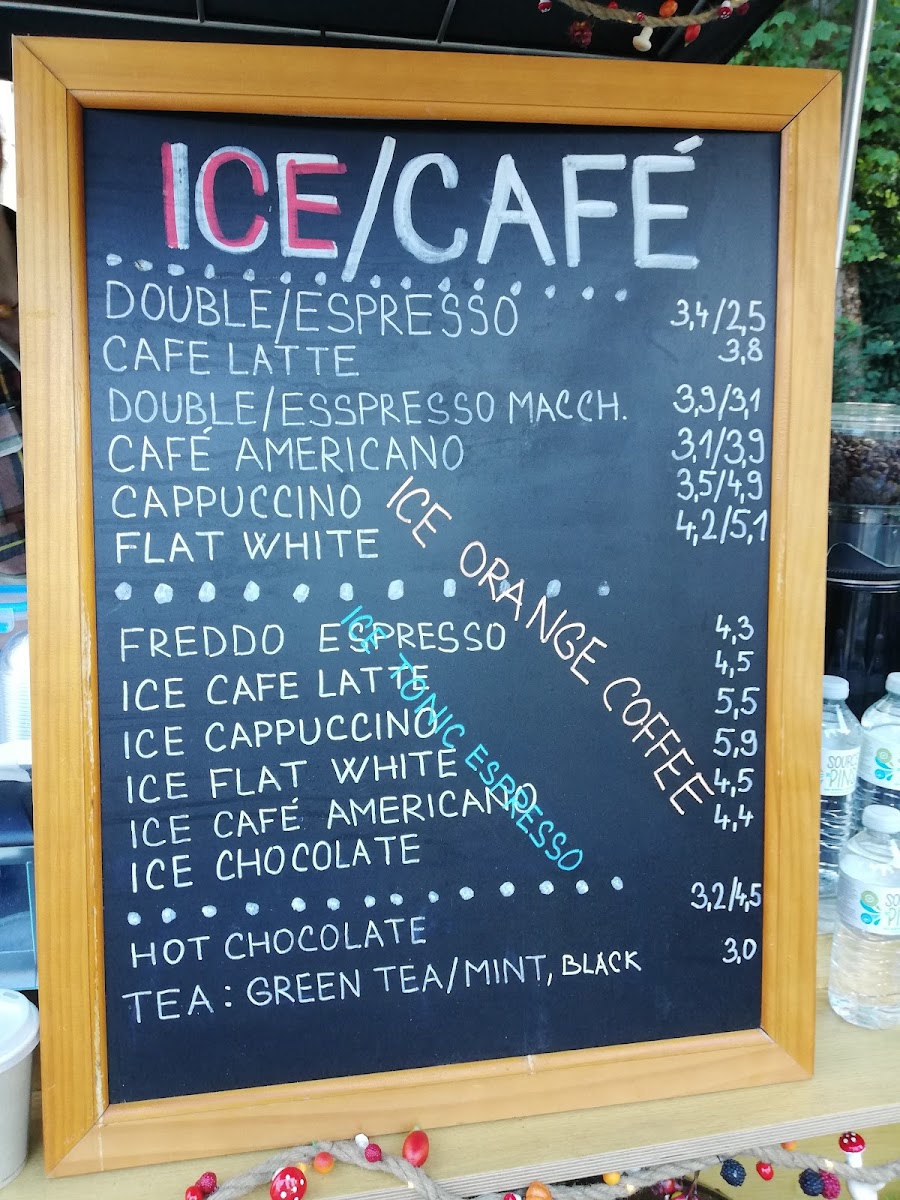 ICE/CAFÉ
DOUBLE/ESPRESSO 3,4/2,5
CAFE LATTE 3,8
DOUBLE/ESSPRESSO MACCH. 3,9/3,1
CAFÉ AMERICANO 3,1/3,9
CAPPUCCINO 3,5/4,9
FLAT WHITE 4,2/5,1
ICE ORANGE COFFEE
ICE TONIC ESPRESSO
FREDDO ESPRESSO 4,3
ICE CAFE LATTE 4,5
ICE CAPPUCCINO 5,5
ICE FLAT WHITE 5,9
ICE CAFÉ AMERICANO 4,5
ICE CHOCOLATE 4,4
HOT CHOCOLATE 3,2/4,5
TEA: GREEN TEA/MINT, BLACK 3,0